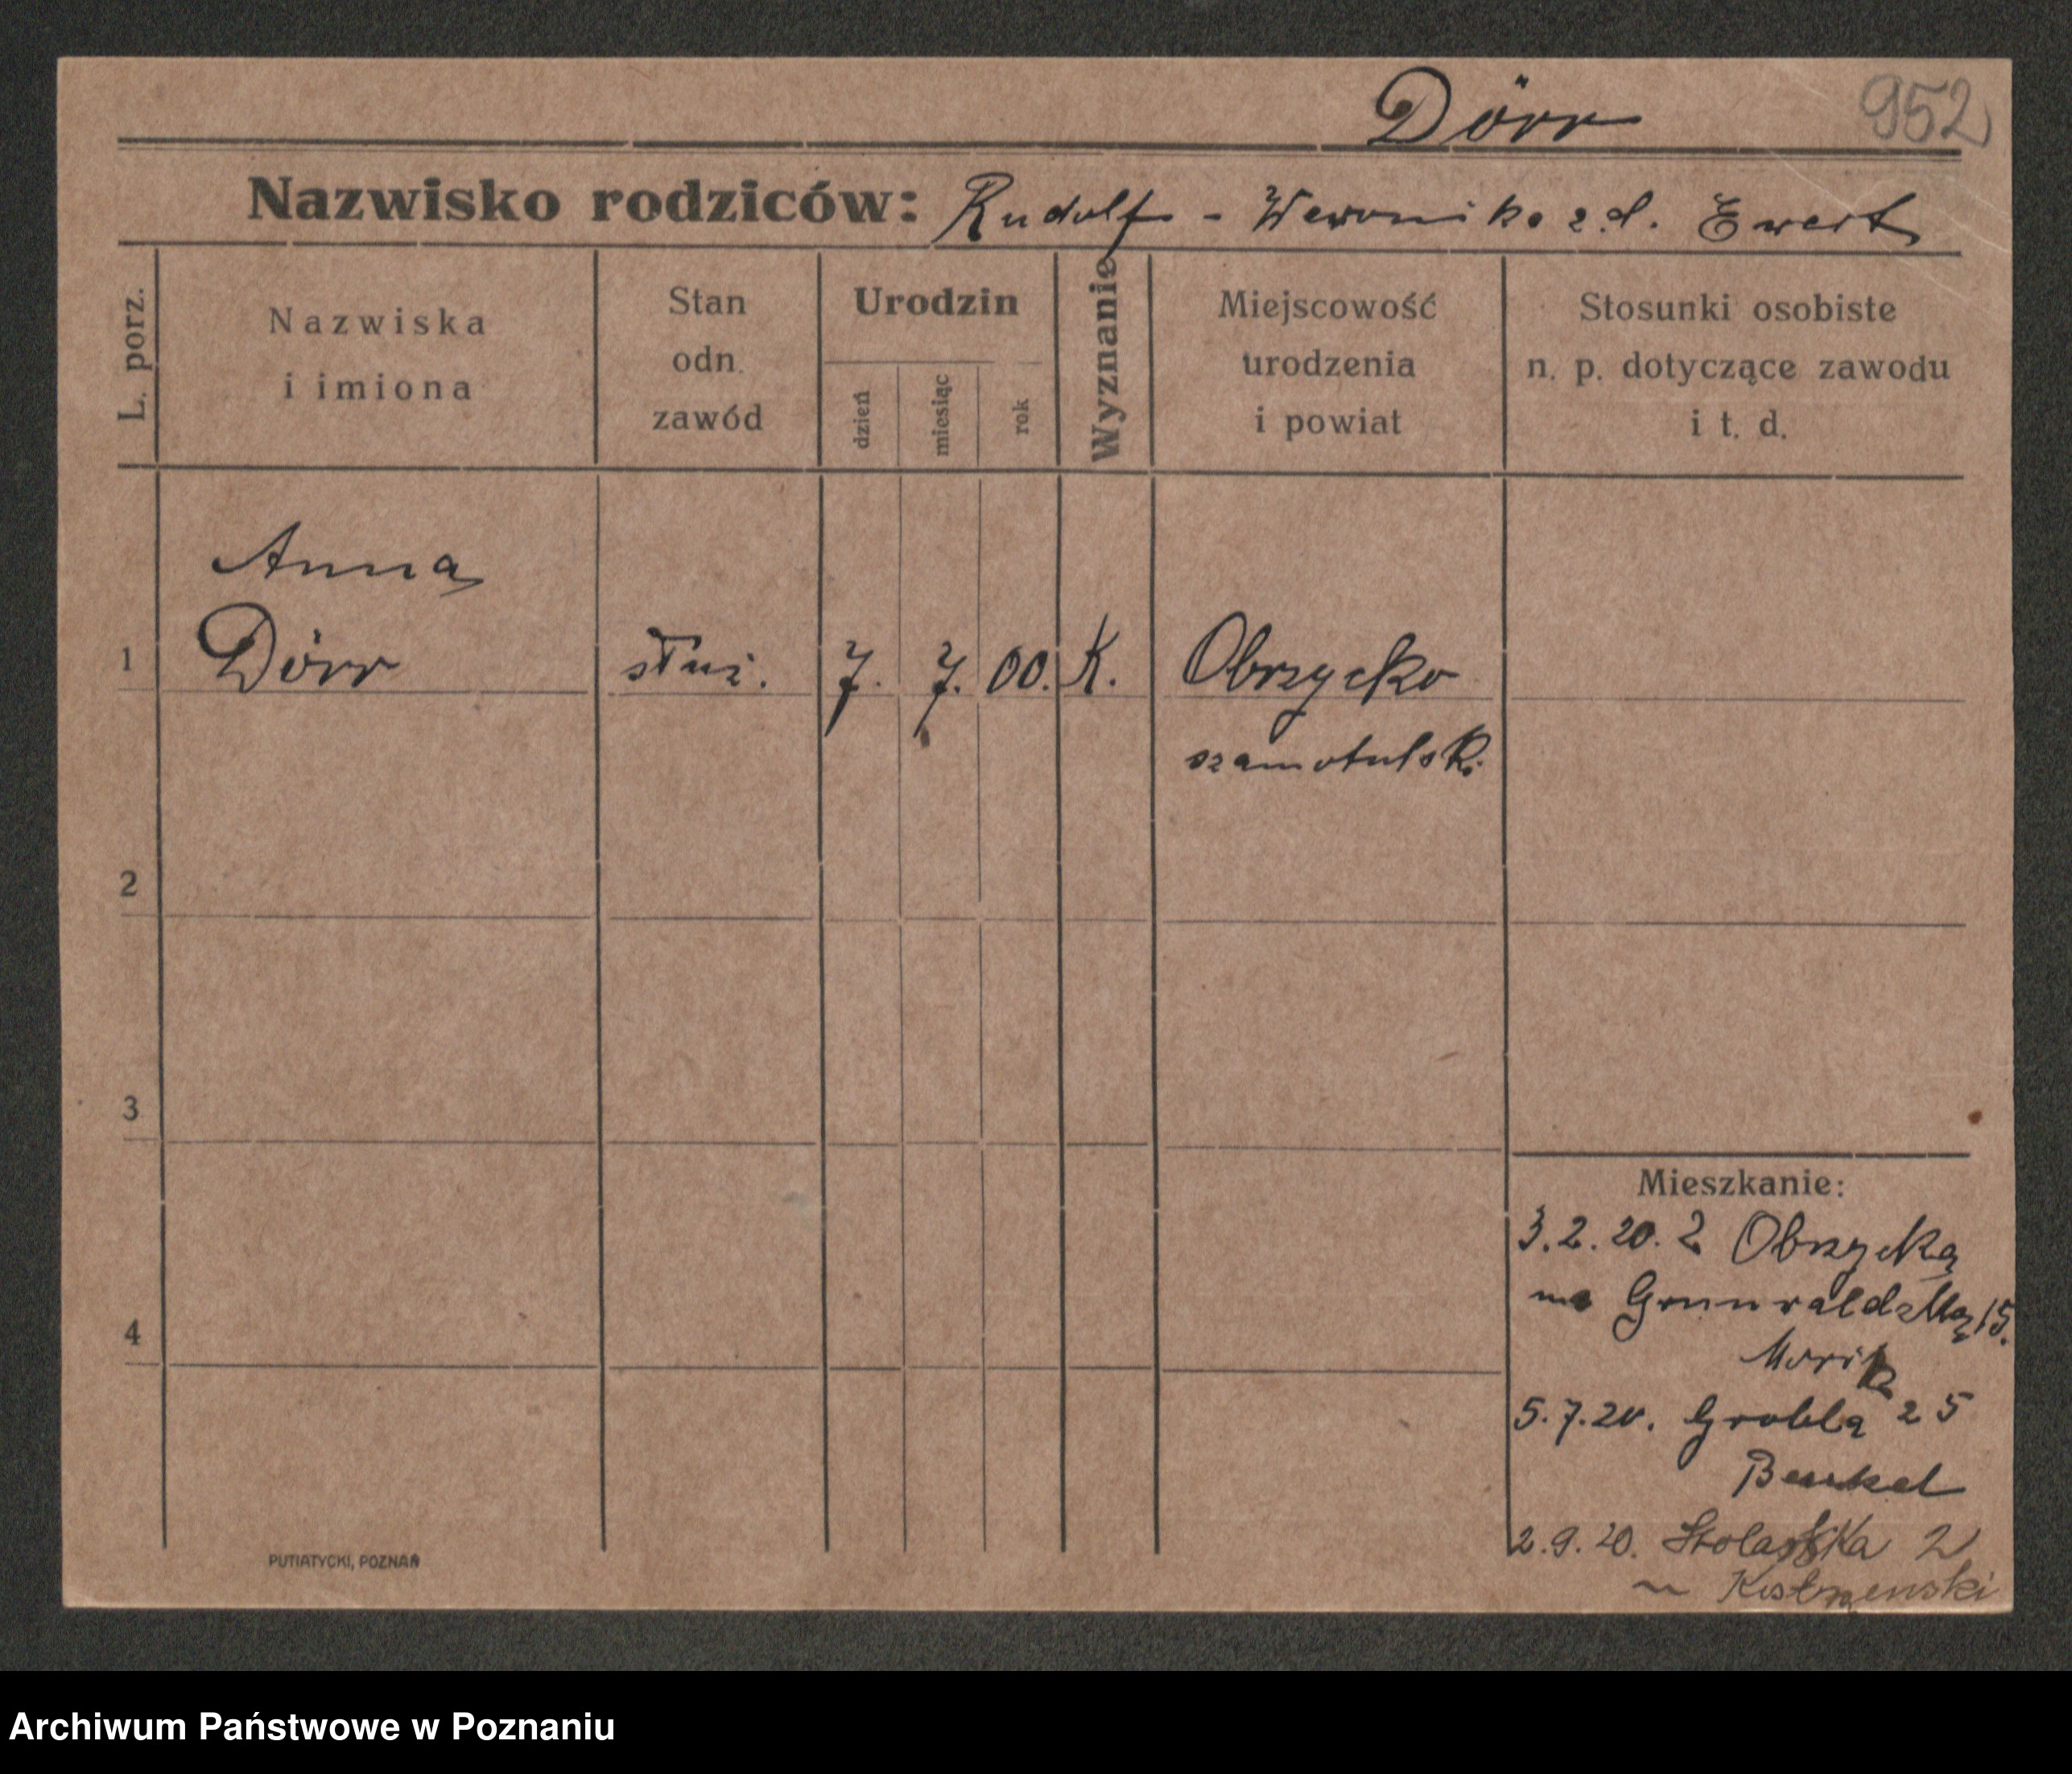 Dörr 952
Nazwisko rodziców: Rudolf - Weronika z d. Ewert
L. porz.
Nazwiska
i imiona
Stan
odn.
zawód
Urodzin
dzień
miesiąc
rok
Wyznanie
Miejscowość
urodzenia
i powiat
Stosunki osobiste
n. p. dotyczące zawodu
i t. d.
Anna
1 Dörr służ. 7. 7. 00. K. Obrzycko
szamotulski
2
3
4
Mieszkanie:
3.2.20. z Obrzycka
na Grunwaldzką 15.
5.7.20. Grobla 25
2.9.20. 2
PUTIATYCKI, POZNAŃ
Archiwum Państwowe w Poznaniu